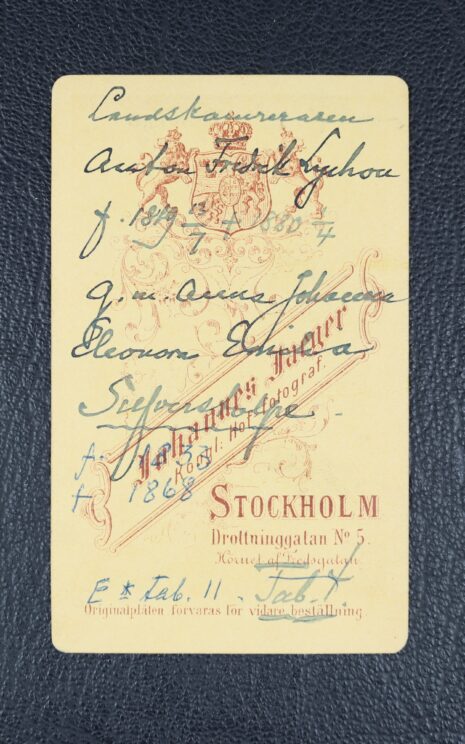 Landskamreraren
Anton Fredrik Lychou
f. 1819 13/7 + 1880 1/4
g. m. Anna Johanna
Eleonora Emilia
Silfverstolpe
f. 1833
+ 1868
Johannes Jaeger
Kongl: Hof-fotograf.
STOCKHOLM
Drottninggatan No 5.
Hörnet af Fredsgatan.
E * tab. 11. Tab.
Originalplåten förvaras för vidare beställning